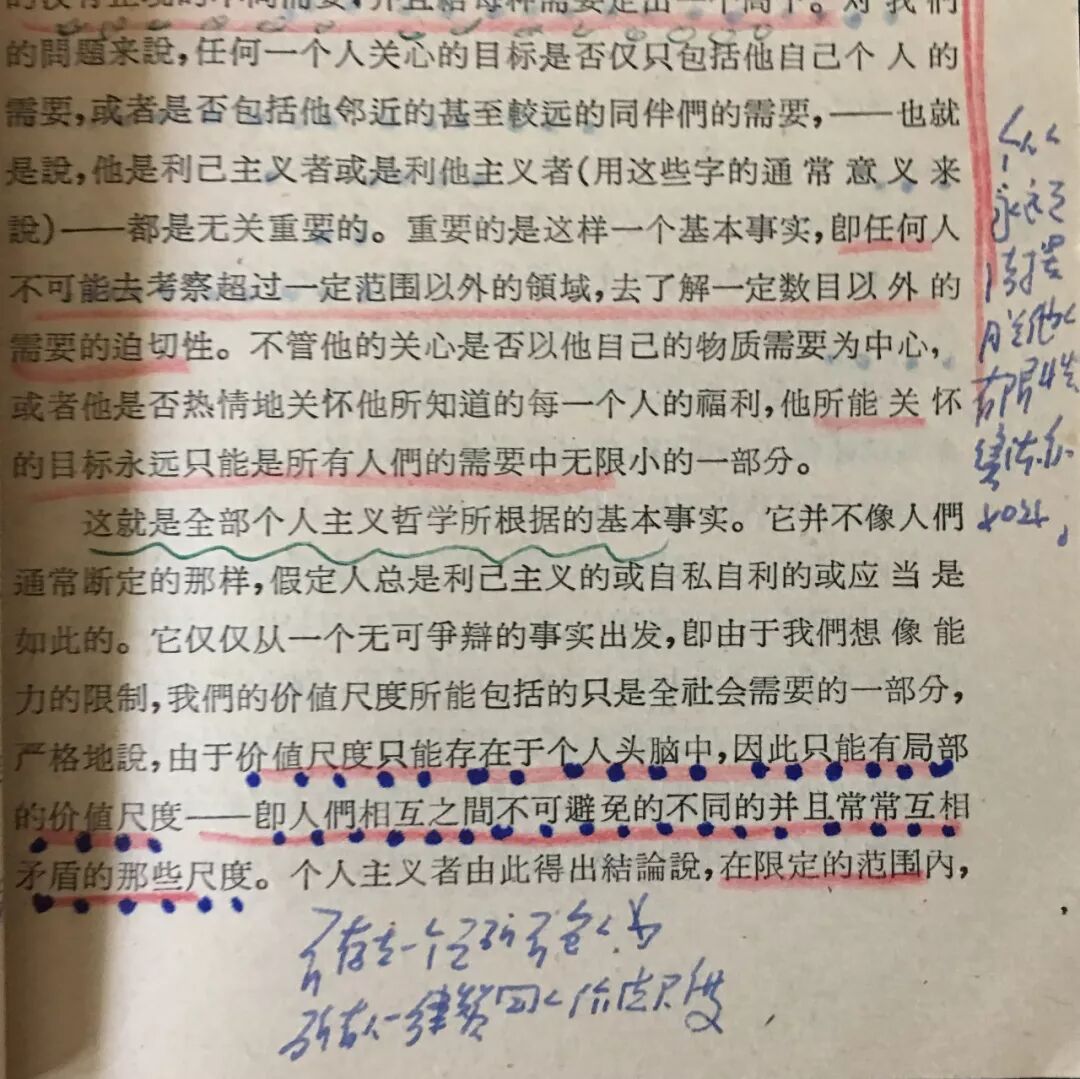 的沒有止境的不同需要，并且給每种需要定出一个高下。对我們
的問題来說，任何一个人关心的目标是否仅只包括他自己个人的
需要，或者是否包括他邻近的甚至較远的同伴們的需要，——也就
是說，他是利己主义者或是利他主义者（用这些字的通常意义来
說）——都是无关重要的。重要的是这样一个基本事实，卽任何人
不可能去考察超过一定范围以外的領域，去了解一定数目以外的
需要的迫切性。不管他的关心是否以他自己的物质需要为中心，
或者他是否热情地关怀他所知道的每一个人的福利，他所能关怀
的目标永远只能是所有人們的需要中无限小的一部分。
这就是全部个人主义哲学所根据的基本事实。它并不像人們
通常断定的那样，假定人总是利己主义的或自私自利的或应当是
如此的。它仅仅从一个无可爭辯的事实出发，卽由于我們想像能
力的限制，我們的价値尺度所能包括的只是全社会需要的一部分，
严格地說，由于价値尺度只能存在于个人头脑中，因此只能有局部
的价値尺度——卽人們相互之間不可避免的不同的并且常常互相
矛盾的那些尺度。个人主义者由此得出結論說，在限定的范围內，
存在一个
价值尺度